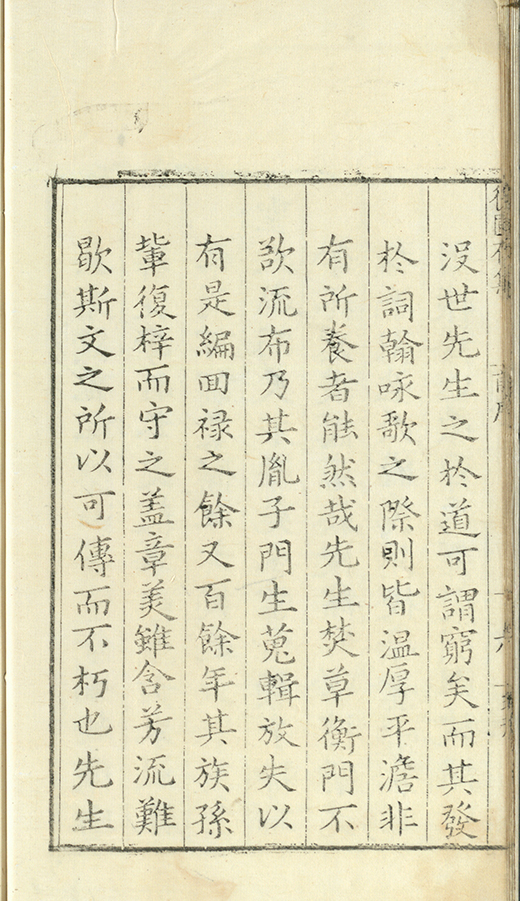 沒世先生之於道可謂窮矣而其發
於詞翰咏歌之際則皆温厚平澹非
有所養者能然哉先生焚草衡門不
欲流布乃其胤子門生蒐輯放失以
有是編回祿之餘又百餘年其族孫
軰復梓而守之盖章美雖含芳流難
歇斯文之所以可傳而不朽也先生